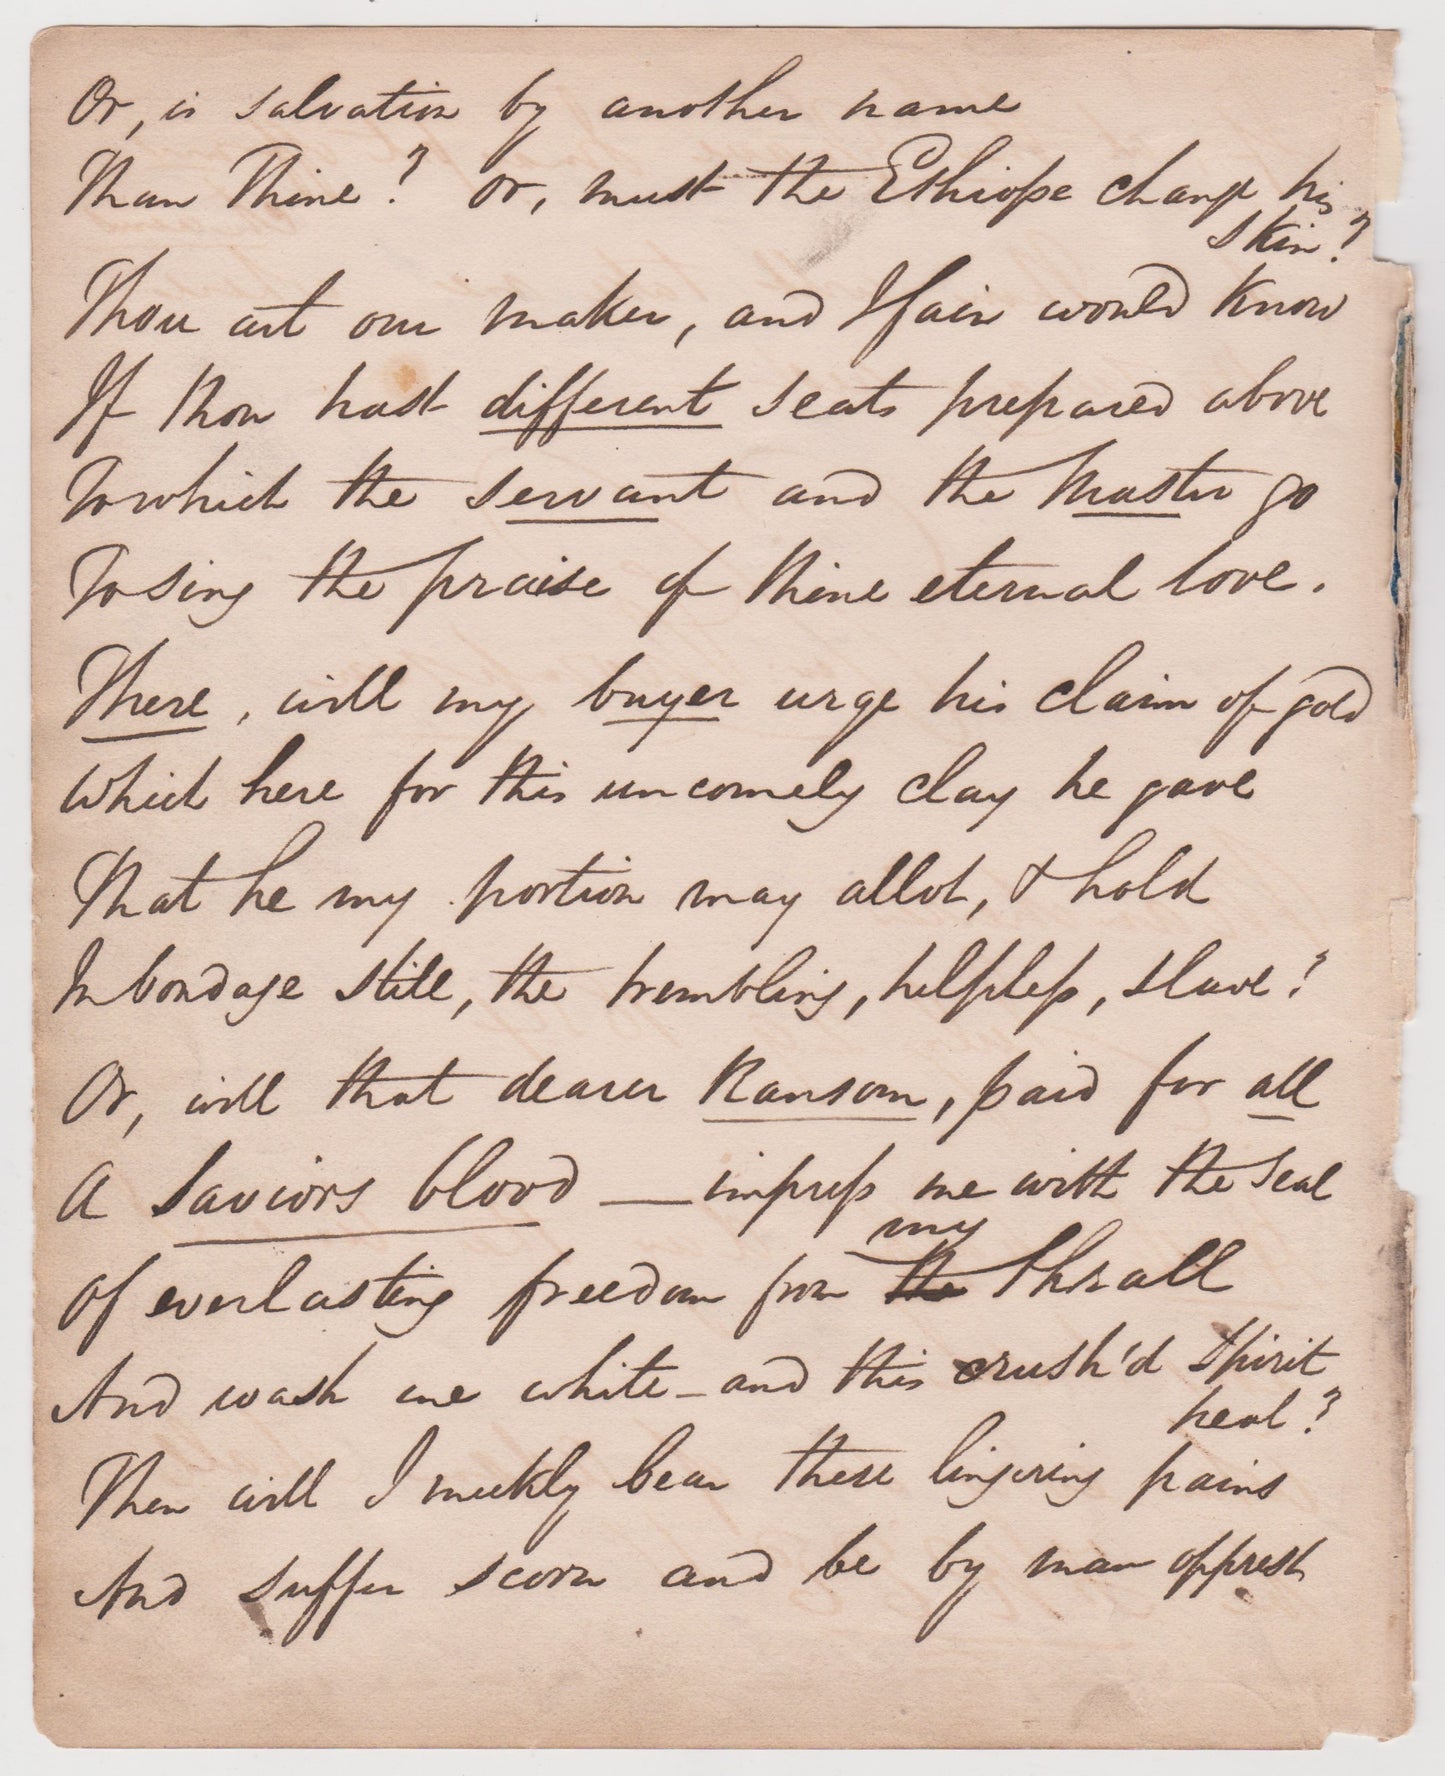 Or, is salvation by another name
Than Thine? or, must the Ethiope change his
skin?
Thou art our maker, and I fain would know
If thou hast different seats prepared above
To which the servant and the Master go
To sing the praise of thine eternal love.
There, will my buyer urge his claim of gold
Which here for this uncomely clay he gave
That he my portion may allot, & hold
In bondage still, the trembling, helpless, slave?
Or, will that dearer Ransom, paid for all
A Saviors blood — impress me with the seal
my
Of everlasting freedom from the thrall
And wash me white – and this crush'd spirit
heal?
Then will I meekly bear these lingering pains
And suffer scorn and be by man opprest